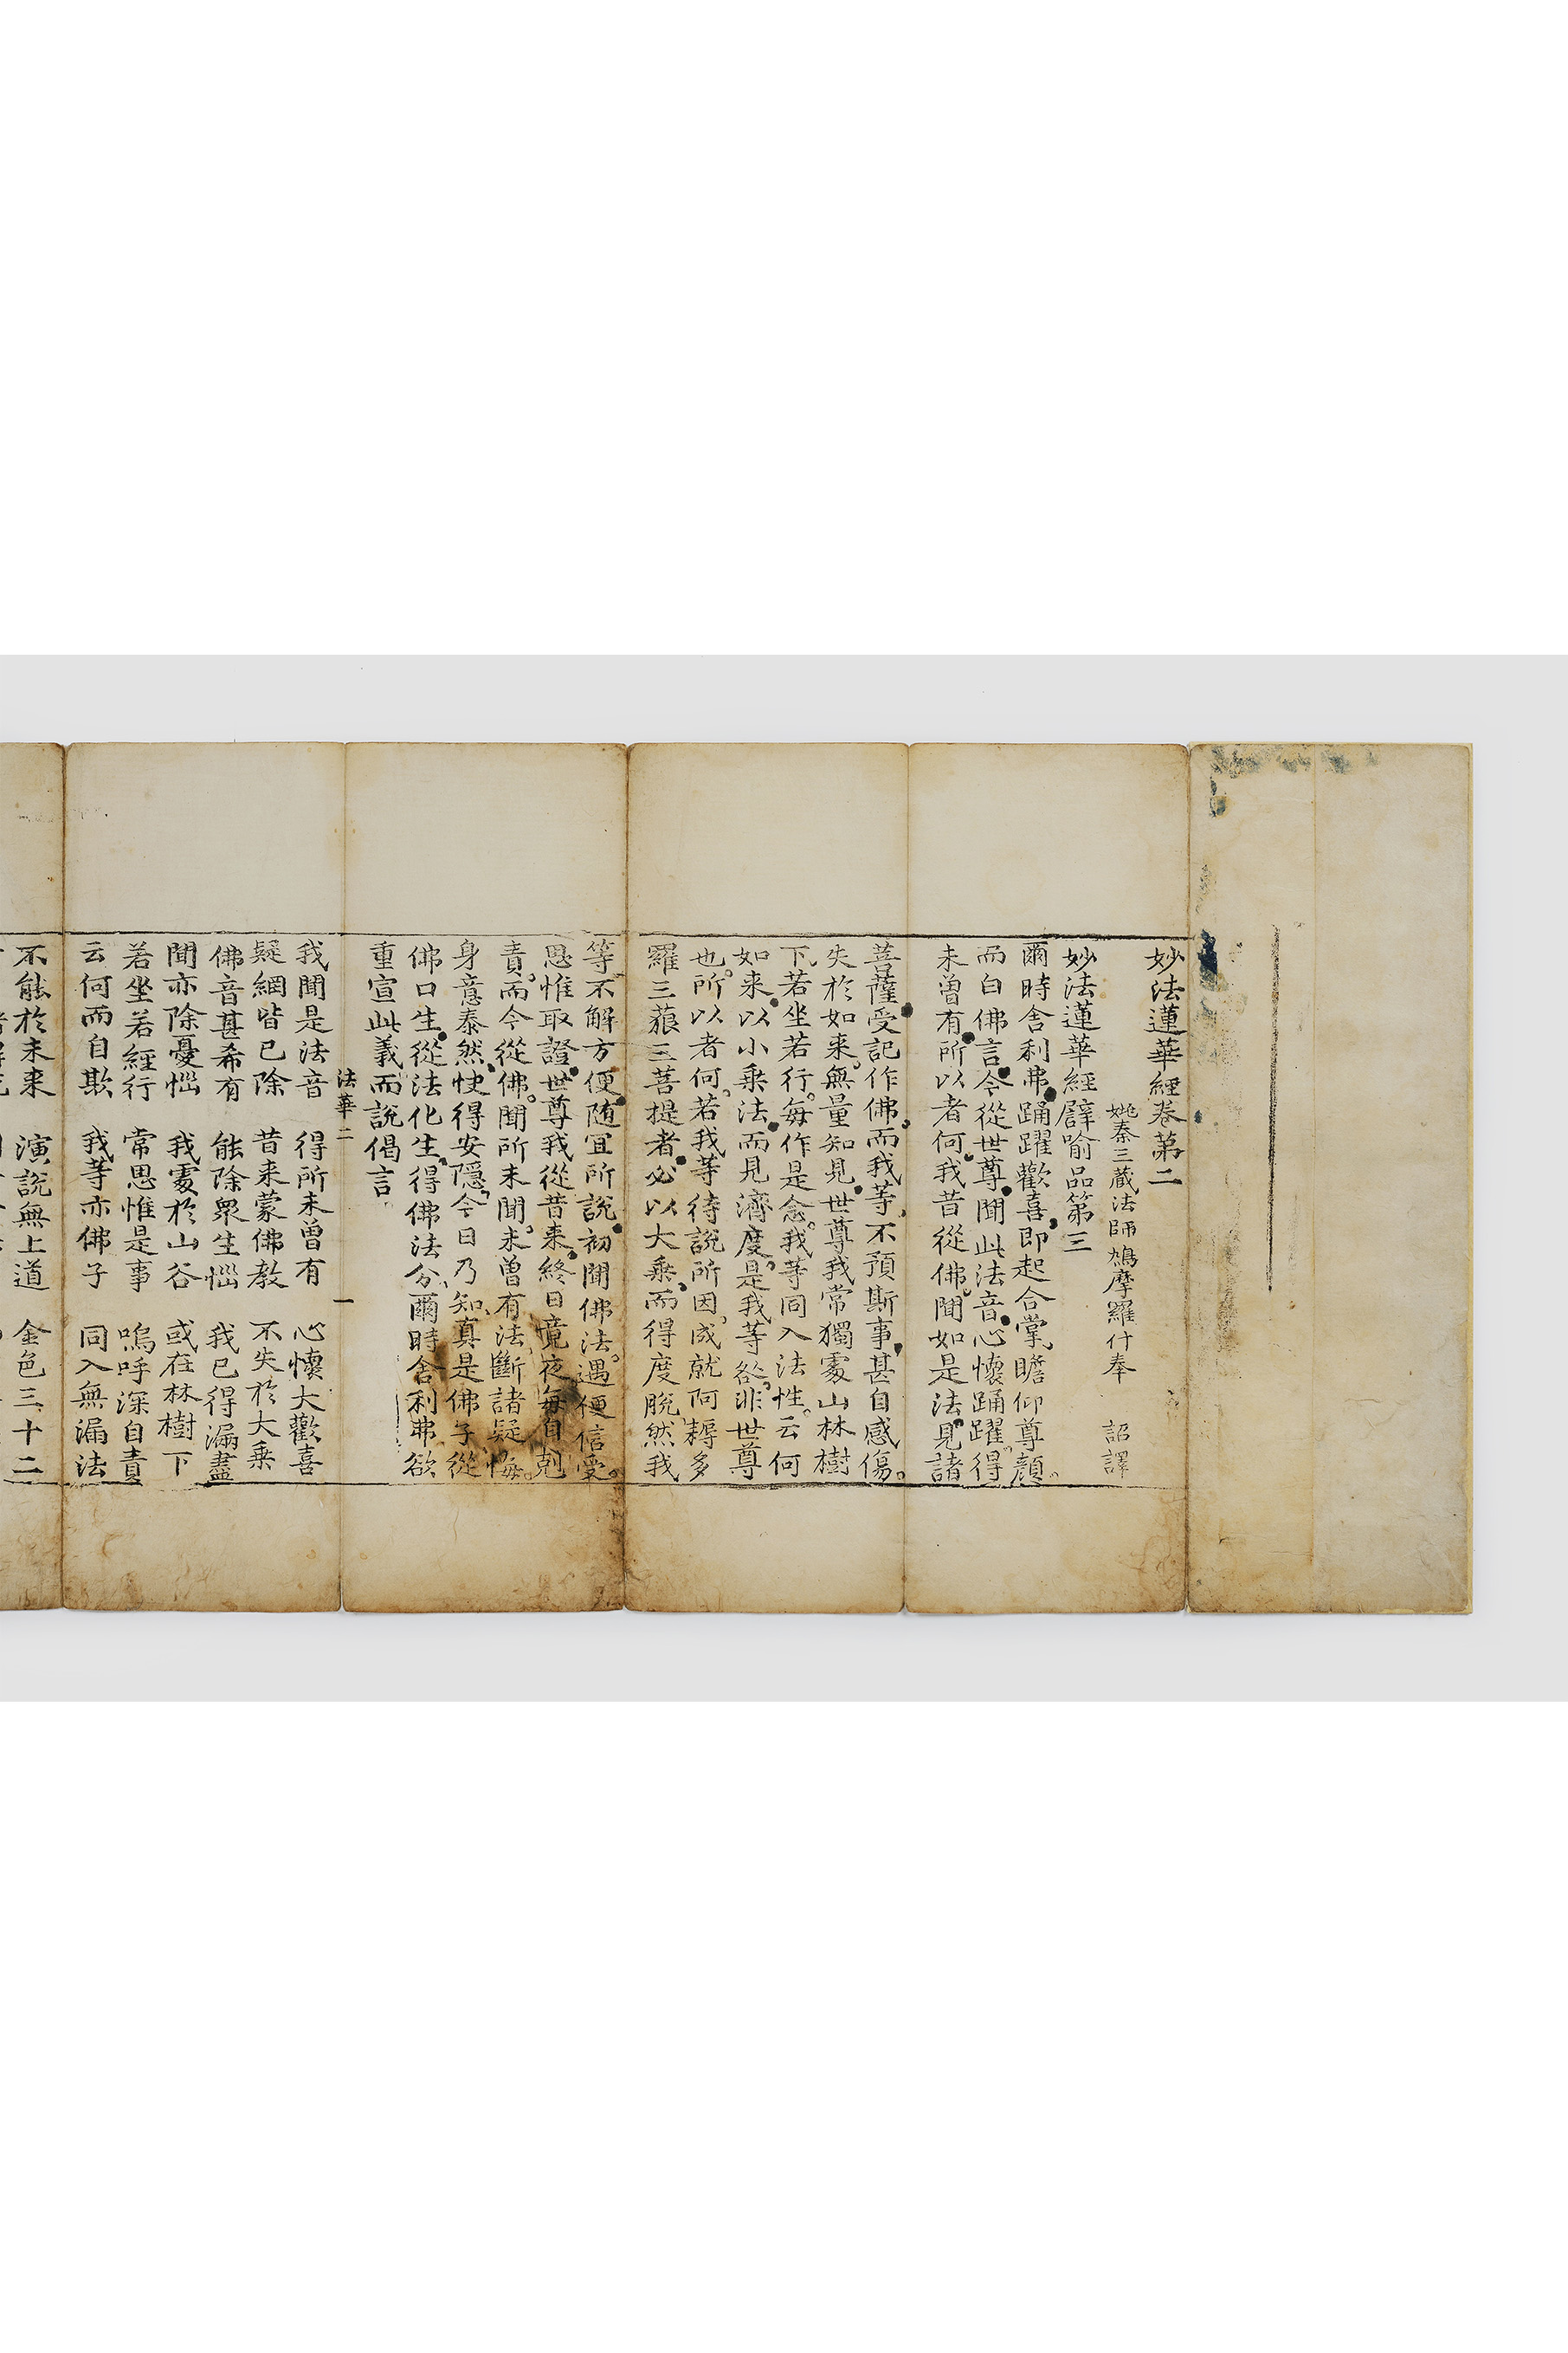 妙法蓮華經卷第二
姚秦三藏法師鳩摩羅什奉 詔譯
妙法蓮華經譬喻品第三
爾時舍利弗踊躍歡喜即起合掌瞻仰尊顔
而白佛言今從世尊聞此法音心懷踊躍得
未曾有所以者何我昔從佛聞如是法見諸
菩薩受記作佛而我等不預斯事甚自感傷
失於如来無量知見世尊我常獨處山林樹
下若坐若行每作是念我等同入法性云何
如来以小乗法而見濟度是我等咎非世尊
也所以者何若我等待說所因成就阿耨多
羅三藐三菩提者必以大乗而得度脫然我
等不解方便随宜所說初聞佛法遇便信受
思惟取證世尊我從昔来終日竟夜每自剋
責而今從佛聞所未聞未曾有法斷諸疑悔
身意泰然快得安隱今日乃知真是佛子從
佛口生從法化生得佛法分爾時舍利弗欲
重宣此義而說偈言
法華二 一
我聞是法音 得所未曾有 心懷大歡喜
疑網皆已除 昔来蒙佛教 不失於大乗
佛音甚希有 能除衆生惱 我已得漏盡
聞亦除憂惱 我處於山谷 或在林樹下
若坐若經行 常思惟是事 嗚呼深自責
云何而自欺 我等亦佛子 同入無漏法
不能於未来 演說無上道 金色三十二